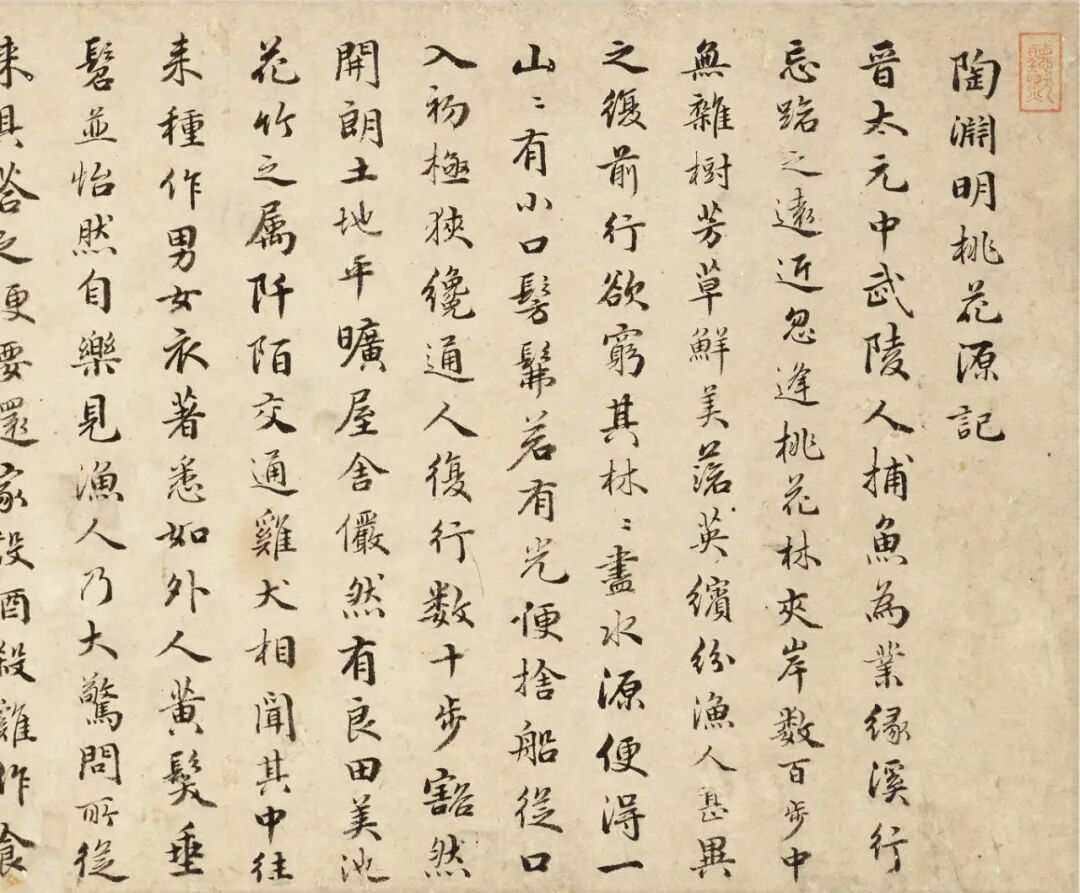 陶淵明桃花源記
晉太元中武陵人捕魚為業緣溪行
忘路之遠近忽逢桃花林夾岸數百步中
無雜樹芳草鮮美落英繽紛漁人甚異
之復前行欲窮其林〻盡水源便得一
山〻有小口髣髴若有光便捨船從口
入初極狹纔通人復行数十步豁然
開朗土地平曠屋舍儼然有良田美池
花竹之属阡陌交通雞犬相聞其中往
来種作男女衣著悉如外人黄髮垂
髫並怡然自樂見漁人乃大驚問所從
来具答之便要還家設酒殺雞作食